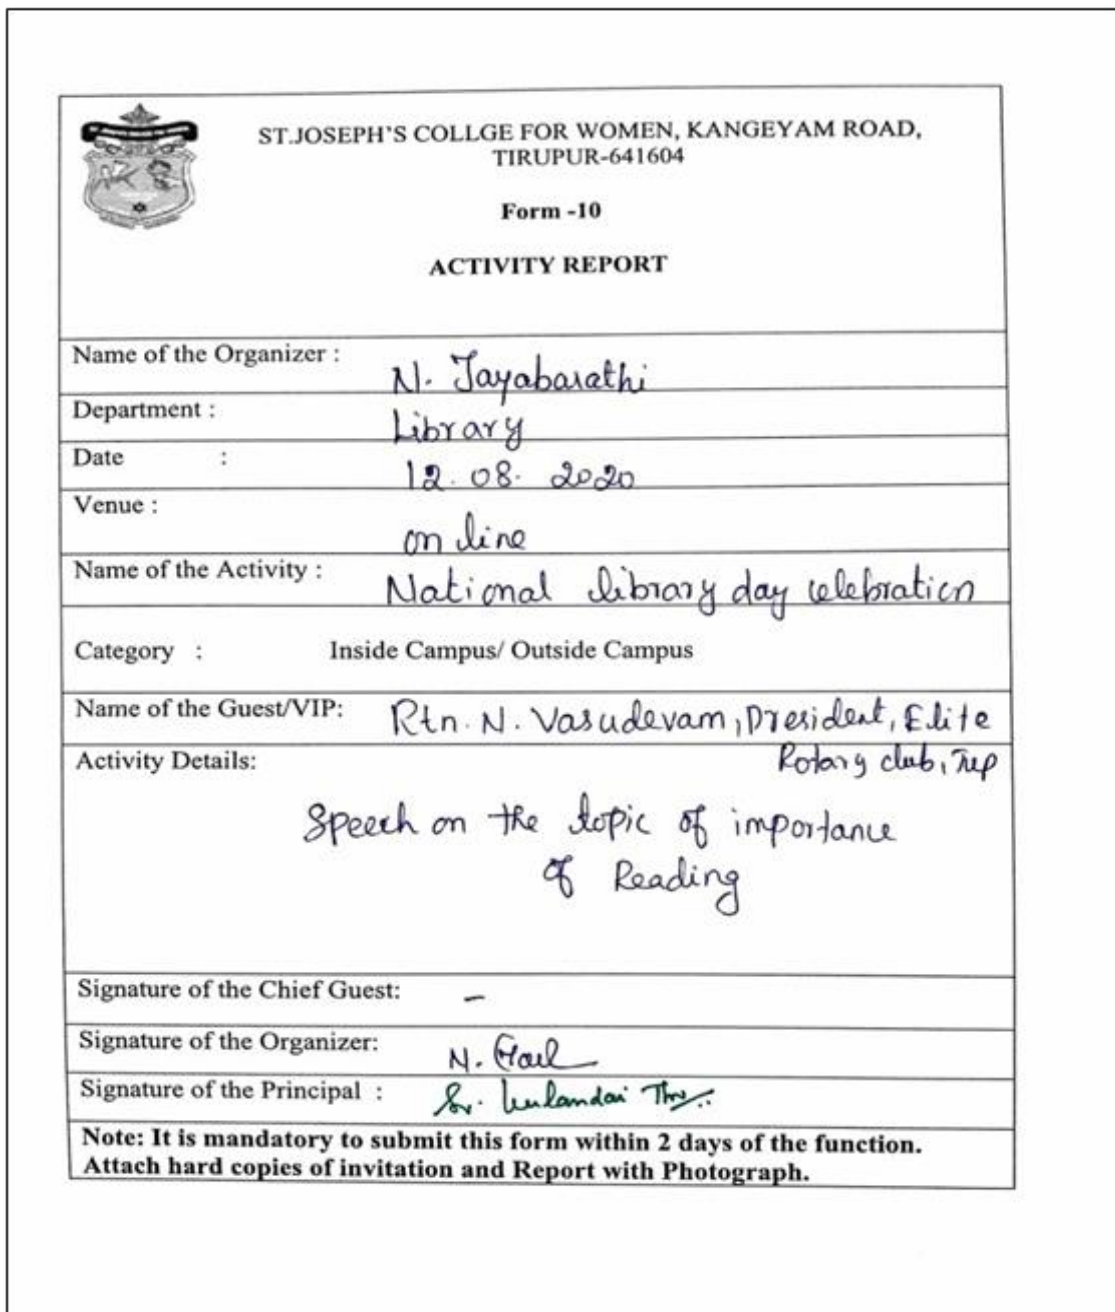 ST.JOSEPH'S COLLGE FOR WOMEN, KANGEYAM ROAD,
TIRUPUR-641604
Form -10
ACTIVITY REPORT
Name of the Organizer :
N. Jayabarathi
Department :
Library
Date :
12.08.2020
Venue :
on line
Name of the Activity :
National library day celebration
Category : Inside Campus/ Outside Campus
Name of the Guest/VIP: Rtn. N. Vasudevam, President, Elite
Rotary club, Tup
Activity Details:
Speech on the topic of importance
of Reading
Signature of the Chief Guest: -
Signature of the Organizer: N.
Signature of the Principal : Sr.
Note: It is mandatory to submit this form within 2 days of the function.
Attach hard copies of invitation and Report with Photograph.